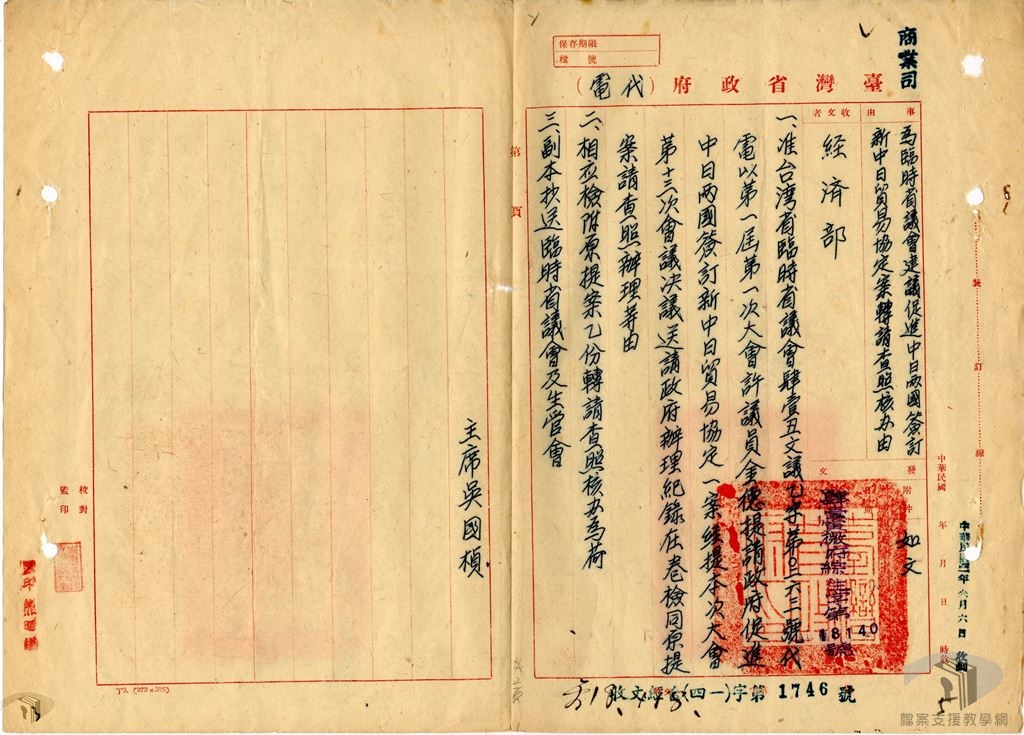 商業司
保存期限
檔號
臺灣省政府(代電)
事由
為臨時省議會建議促進中日兩國簽訂
新中日貿易協定案轉請查照核办由
收文者
經濟部
發文
附件
如文
中華民國 年 月 日 時
裝 訂 線
18140
一、准台湾省臨時省議會肆壹丑文議乙字第〇六三一號代
電以第一屆第一次大會許議員金德提請政府促進
中日兩國簽訂新中日貿易協定一案經提本次大會
第十三次會議決議送請政府辦理紀錄在卷檢同原提
案請查照辦理等由
二、相应檢附原提案乙份轉請查照核办為荷
三、副本抄送臨時省議會及生管會
主席吳國楨
第 頁
校對
監印
收文經(四一)字第1746號
共二頁
T3. (272×395)
檔案支援教學網